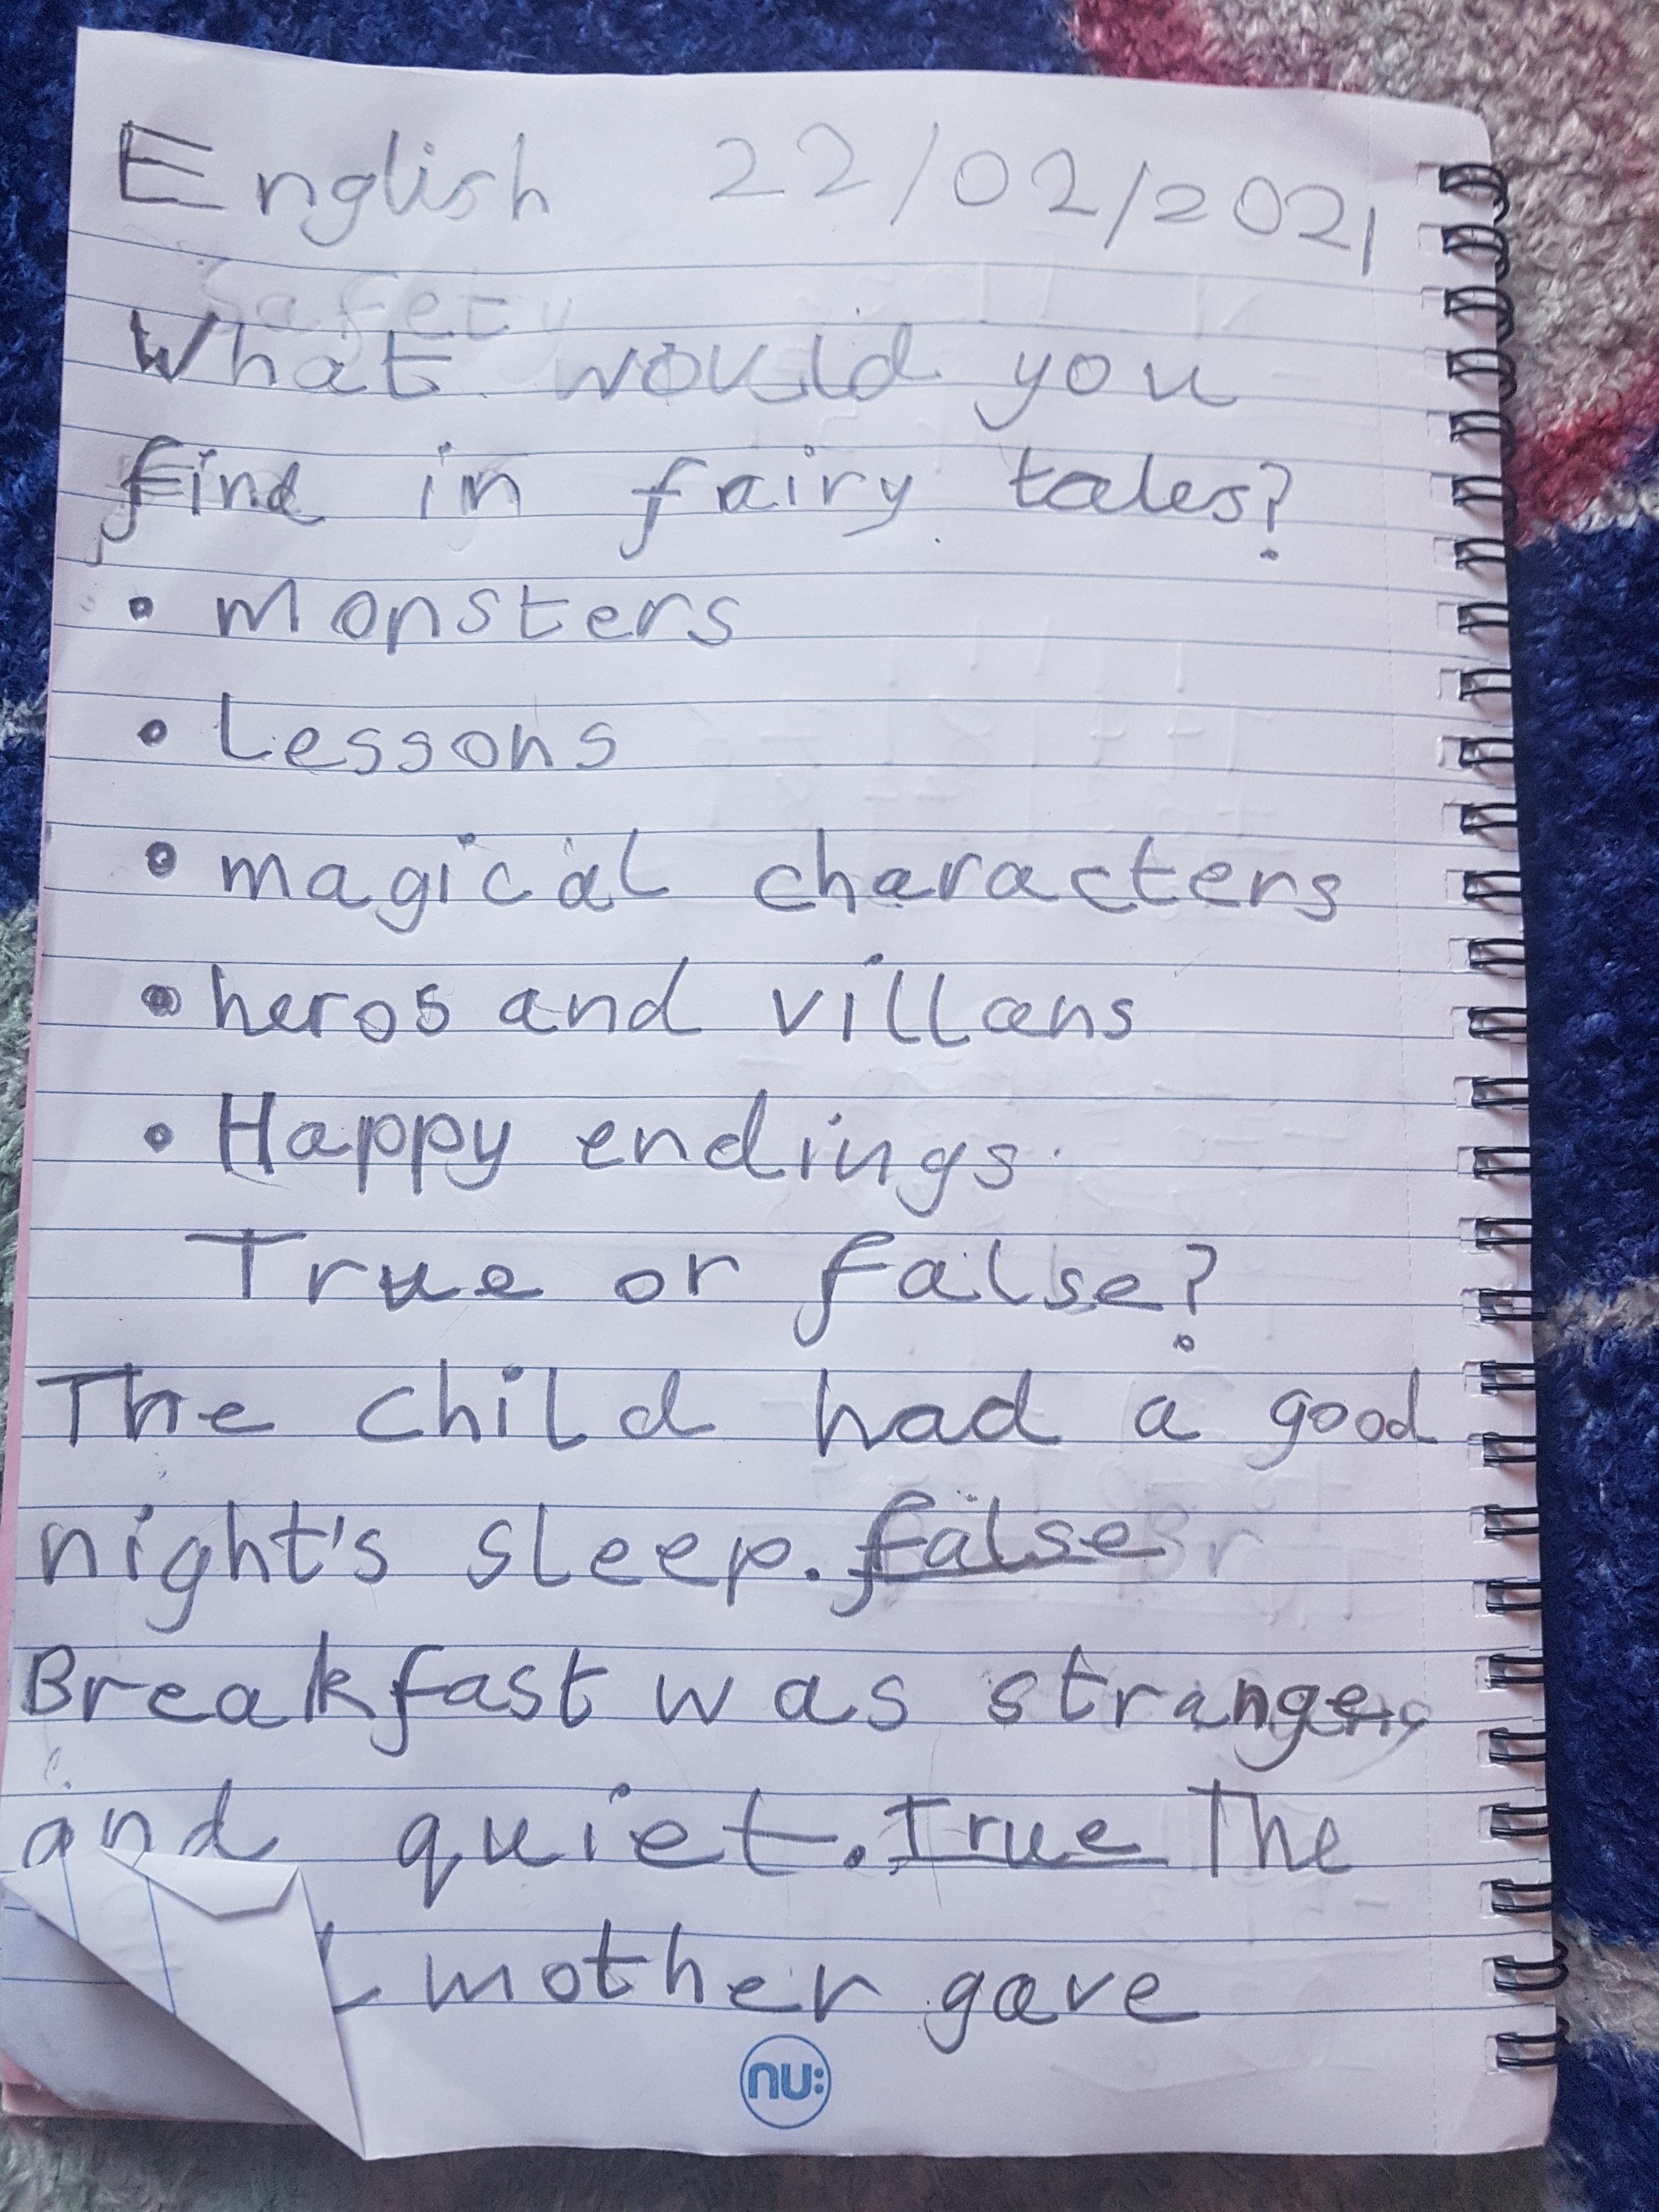 English 22/02/2021
Safety
What would you
find in fairy tales?
• Monsters
• Lessons
• magical characters
• heros and villans
• Happy endings.
True or false?
The child had a good
night's sleep. false
Breakfast was strange
and quiet. True The
mother gave
nu: